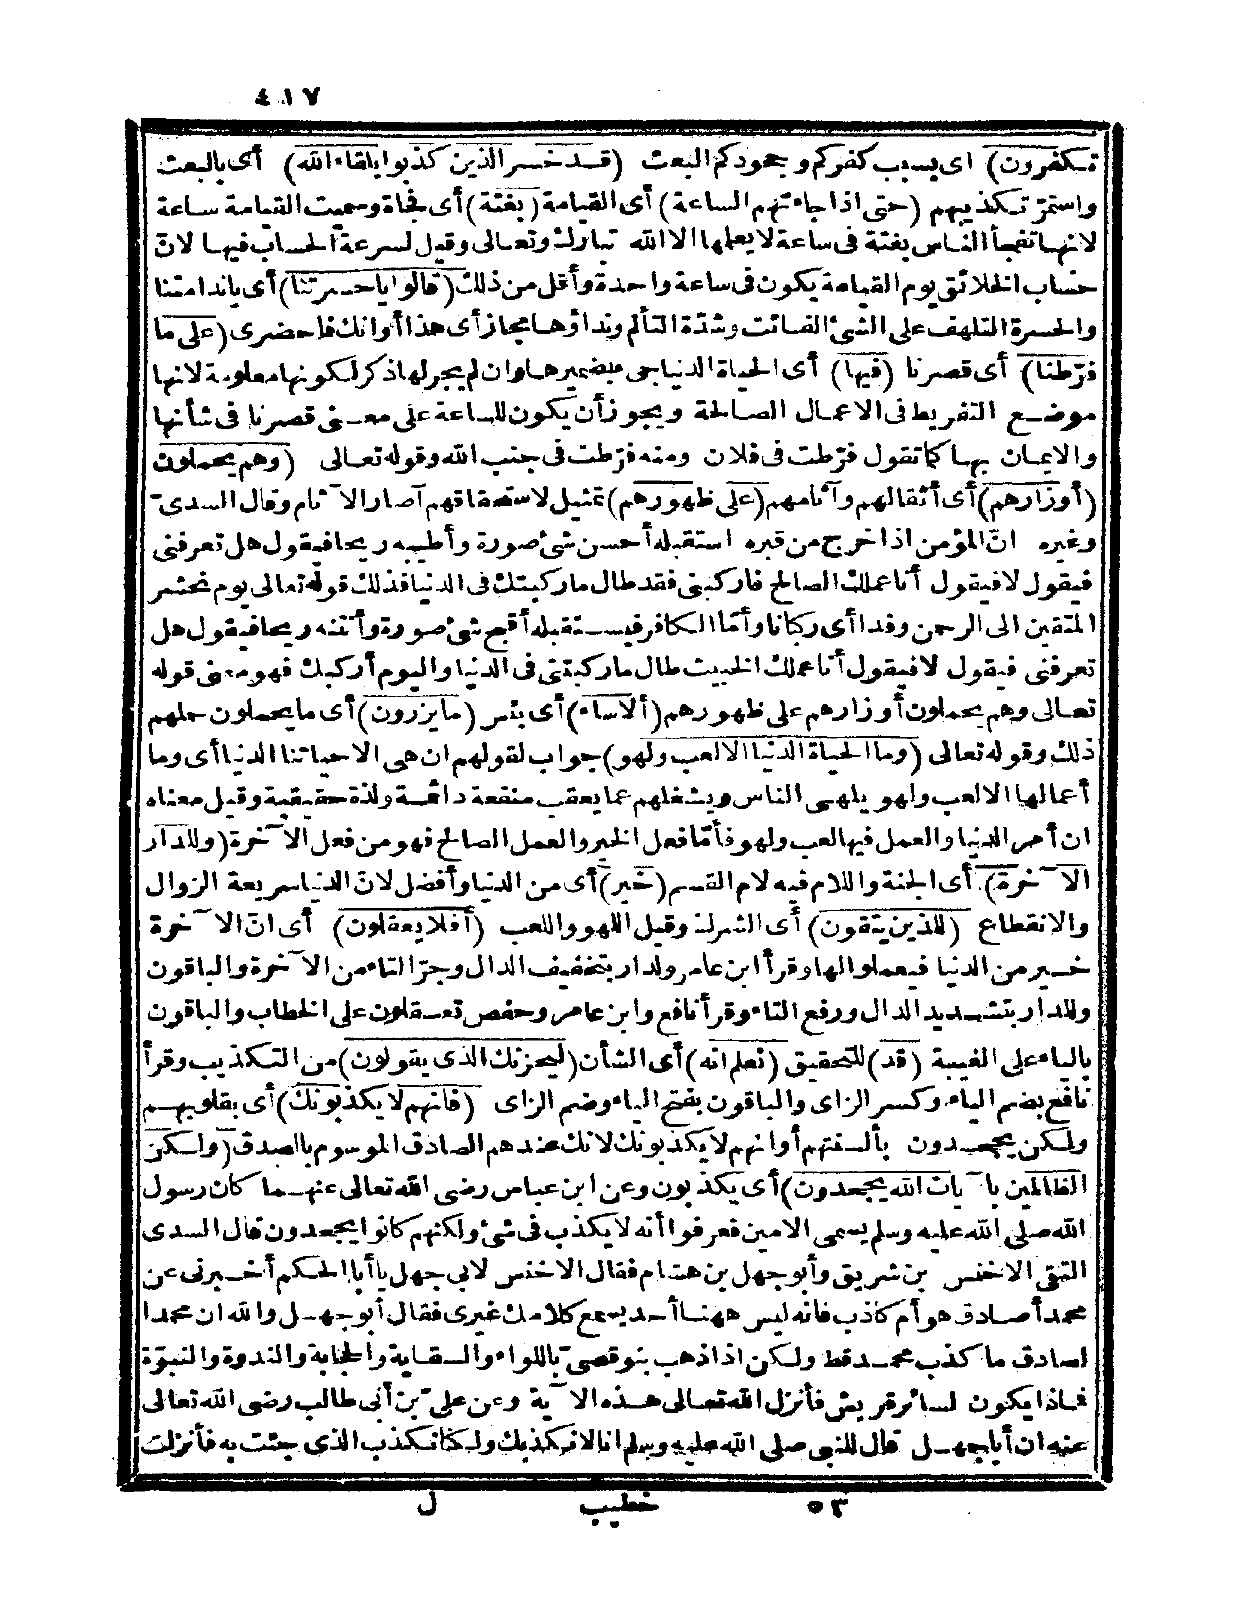 ٤١٧
تكفرون) اى بسبب كفركم وجحودكم البعث (قد خسر الذين كذبوا بلقاء الله) أى بالبعث
واستمرّ تكذيبهم (حتى اذا جاءتهم الساعة) أى القيامة (بغتة) أى فجأة وسميت القيامة ساعة
لانها تفجأ الناس بغتة فى ساعة لا يعلمها الا الله تبارك وتعالى وقيل لسرعة الحساب فيها لانّ
حساب الخلائق يوم القيامة يكون فى ساعة واحدة وأقل من ذلك (قالوا يا حسرتنا) أى يا ندامتنا
والحسرة التلهف على الشئ الفائت وشدّة التألم ونداؤها مجاز أى هذا أوانك فاحضرى (على ما
فرّطنا) أى قصرنا (فيها) أى الحياة الدنيا جى بضميرها وان لم يجر لها ذكر لكونها معلومة لانها
موضع التفريط فى الاعمال الصالحة ويجوز أن يكون للساعة على معنى قصرنا فى شأنها
والايمان بها كما تقول فرّطت فى فلان ومنه فرّطت فى جنب الله وقوله تعالى (وهم يحملون
(أوزارهم) أى أثقالهم وآثامهم (على ظهورهم) تمثيل لاستحقاقهم آصار الآثام وقال السدىّ
وغيره انّ المؤمن اذا خرج من قبره استقبله أحسن شئ صورة وأطيبه ريحا فيقول هل تعرفنى
فيقول لا فيقول أنا عملك الصالح فاركبنى فقد طال ما ركبتك فى الدنيا فذلك قوله تعالى يوم نحشر
المتقين الى الرحمن وفدا أى ركبانا وأمّا الكافر فيستقبله أقبح شئ صورة وأنتنه ريحا فيقول هل
تعرفنى فيقول لا فيقول أنا عملك الخبيث طال ما ركبتنى فى الدنيا واليوم أركبك فهو معنى قوله
تعالى وهم يحملون أوزارهم على ظهورهم (ألا ساء) أى بئس (ما يزرون) أى ما يحملون حملهم
ذلك وقوله تعالى (وما الحياة الدنيا الا لعب ولهو) جواب لقولهم ان هى الا حياتنا الدنيا أى وما
أعمالها الا لعب ولهو يلهى الناس ويشغلهم عما يعقب منفعة دائمة ولذة حقيقية وقيل معناه
ان أمر الدنيا والعمل فيها لعب ولهو فأمّا فعل الخير والعمل الصالح فهو من فعل الآخرة (وللدار
الآخرة) أى الجنة واللام فيه لام القسم (خير) أى من الدنيا وأفضل لانّ الدنيا سريعة الزوال
والانقطاع (للذين يتقون) أى الشرك وقيل اللهو واللعب (أفلا يعقلون) أى انّ الآخرة
خير من الدنيا فيعملوا لها وقرأ ابن عامر ولدار بتخفيف الدال وجرّ التاء من الآخرة والباقون
وللدار بتشديد الدال ورفع التاء وقرأ نافع وابن عامر وحفص تعقلون على الخطاب والباقون
بالياء على الغيبة (قد) للتحقيق (نعلم انه) أى الشأن (ليحزنك الذى يقولون) من التكذيب وقرأ
نافع بضم الياء وكسر الزاى والباقون بفتح الياء وضم الزاى (فانهم لا يكذبونك) أى بقلوبهم
ولكن يجحدون بألسنتهم أو انهم لا يكذبونك لانك عندهم الصادق الموسوم بالصدق (ولكنّ
الظالمين بآيات الله يجحدون) أى يكذبون وعن ابن عباس رضى الله تعالى عنهما كان رسول
الله صلى الله عليه وسلم يسمى الامين فعرفوا أنه لا يكذب فى شئ ولكنهم كانوا يجحدون قال السدى
التقى الاخنس بن شريق وأبو جهل بن هشام فقال الاخنس لابى جهل يا أبا الحكم أخبرنى عن
محمد أصادق هو أم كاذب فانه ليس ههنا أحد يسمع كلامك غيرى فقال أبو جهل والله ان محمدا
لصادق ما كذب محمد قط ولكن اذا ذهب بنو قصىّ باللواء والسقاية والحجابة والندوة والنبوّة
فماذا يكون لسائر قريش فأنزل الله تعالى هذه الآية وعن علىّ بن أبى طالب رضى الله تعالى
عنه ان أبا جهل قال للنبى صلى الله عليه وسلم انا لا نكذبك ولكنا نكذب الذى جئت به فأنزلت
٥٣ خطيب ل